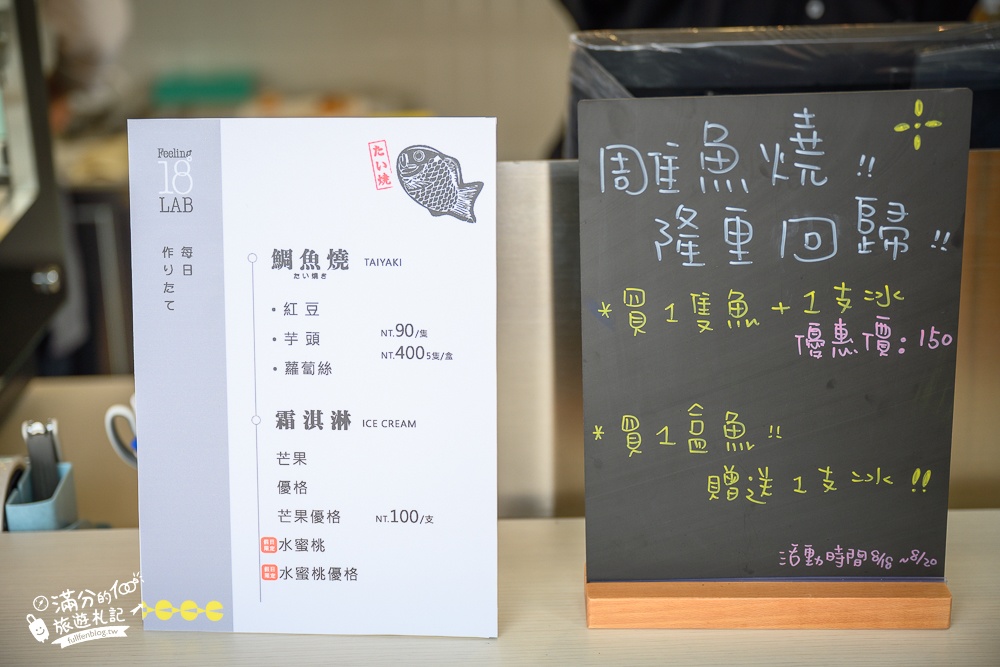 Feeling
18
LAB
毎日
作りたて
たい焼
鯛魚燒 TAIYAKI
たい焼き
• 紅豆
• 芋頭
• 蘿蔔絲
NT.90/隻
NT.400 5隻/盒
霜淇淋 ICE CREAM
芒果
優格
芒果優格 NT.100/支
水蜜桃
水蜜桃優格
雕魚燒!!
隆重回歸!!
*買1隻魚+1支冰
優惠價:150
*買1盒魚!!
贈送1支冰!!
活動時間8/18~8/20
滿分的
旅遊札記
fullfenblog.tw